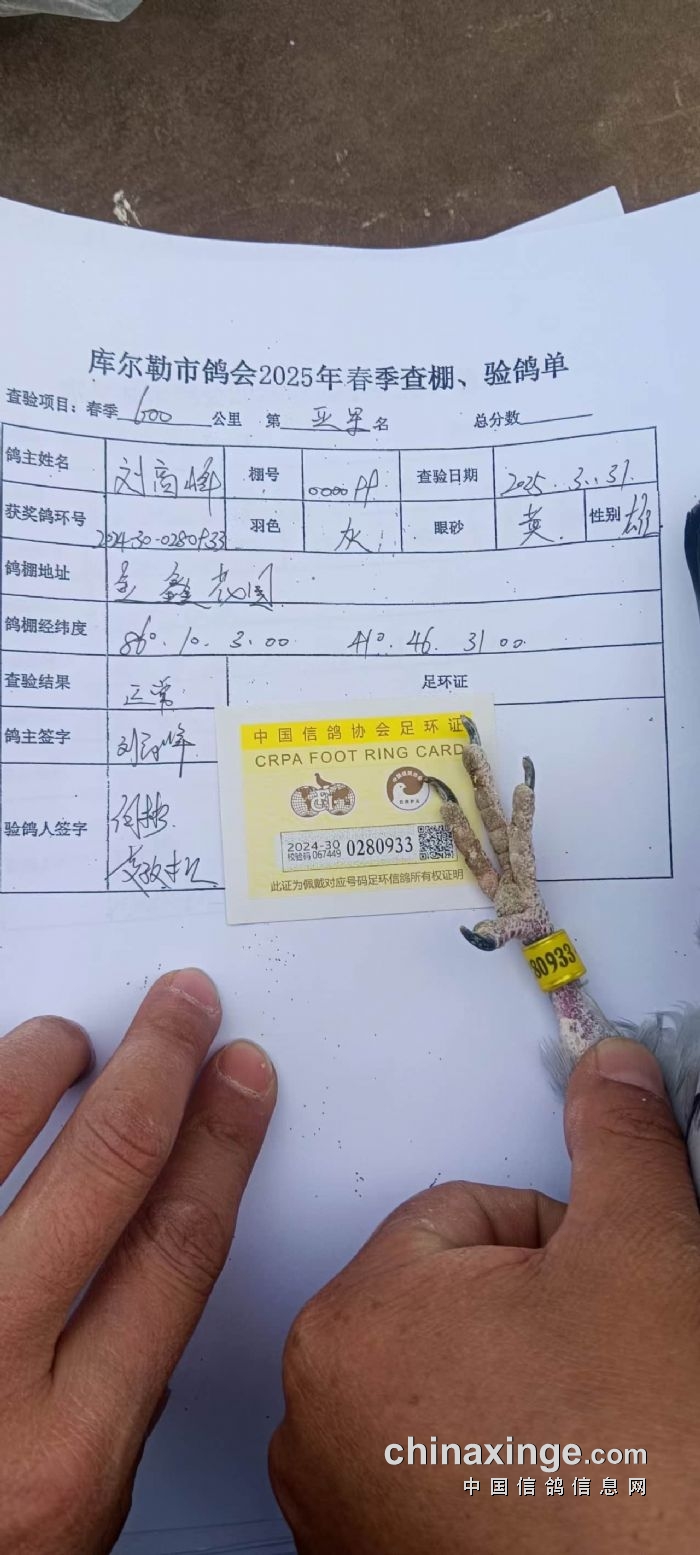 库尔勒市鸽会2025年春季查棚、验鸽单
查验项目：春季 600 公里 第 亚军 名 总分数
鸽主姓名 刘高峰 棚号 0000 查验日期 2025.3.31.
获奖鸽环号 2024-30-0280933 羽色 灰 眼砂 黄 性别 雄
鸽棚地址 鑫花园
鸽棚经纬度 86°.10.3.00 41°.46.31.00
查验结果 正常 足环证
鸽主签字 刘高峰
验鸽人签字
中国信鸽协会足环证
CRPA FOOT RING CARD
2024-30
校验码 067449 0280933
此证为佩戴对应号码足环信鸽所有权证明
80933
chinaxinge.com
中国信鸽信息网